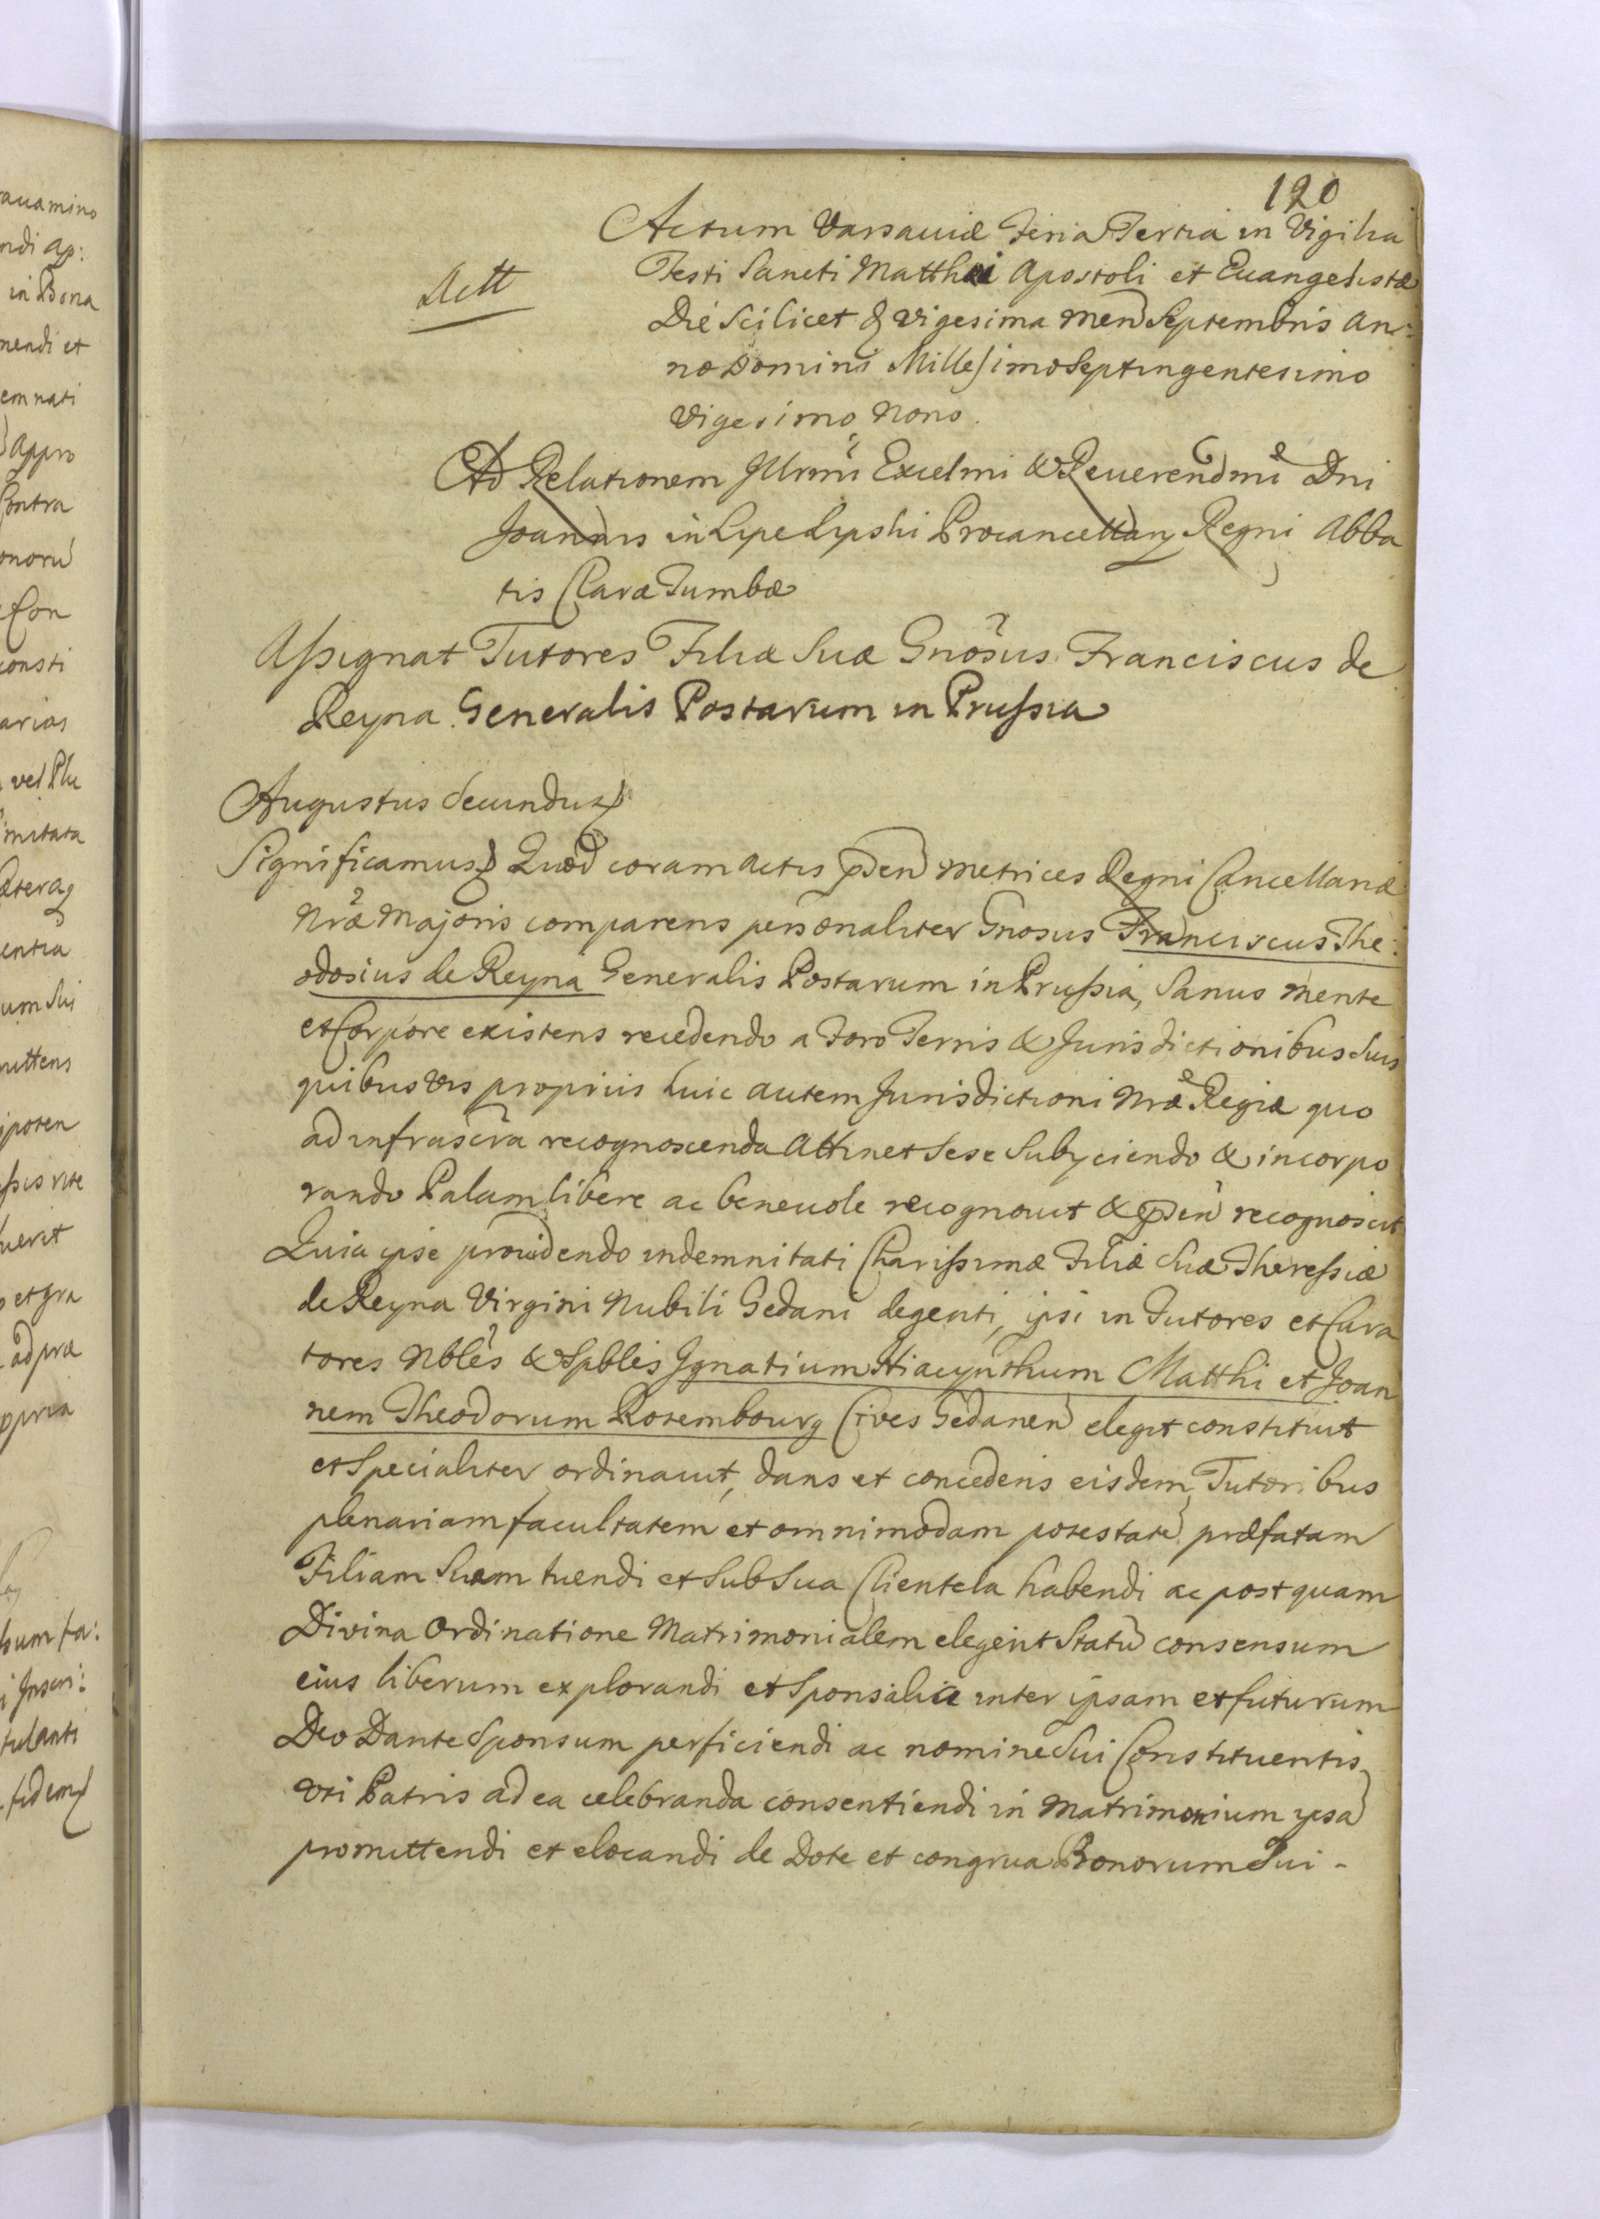 120
Actum Varsaviæ Feria Tertia in Vigilia
Festi Sancti Matthæi Apostoli et Euangelistæ
Ditt
Die Scilicet Vigesima Men Septembris An:
no Domini Millesimo Septingentesimo
Vigesimo Nono.
Ad Relationem Illrmi Excelmi & Reuerendmi Dni
Joannis in Lipe Lipski Procancellarij Regni Abba
tis Claræ Tumbæ
Assignat Tutores Filiæ Suæ Gnosus Franciscus de
Reyna Generalis Postarum in Prussia
Augustus Secundus
Significamus Quod coram actis pden Metrices Regni Cancellariæ
Nræ Majoris comparens personaliter Gnosus Franciscus The:
odosius de Reyna Generalis Postarum in Prussia, Sanus mente
et Corpore existens recedendo a Foro Terris & Jurisdictionibus Suis
quibusvis propriis huic autem Jurisdictioni Nræ Regiæ quo
ad infrascra recognoscenda attinet sese Subijciendo & incorpo
rando Palam libere ac beneuole recognouit & pden recognoscit
Quia ipse prouidendo indemnitati Charissimæ Filiæ Suæ Theressiæ
de Reyna Virgini Nubili Gedani degenti, ipsi in Tutores et Cura
tores Nbles & Spbles Ignatium Hiacynthum Matthi et Joan
nem Theodorum Rosembourg Cives Gedanen elegit constituit
et Specialiter ordinauit, dans et concedens eisdem Tutoribus
plenariam facultatem et omnimodam potestate præfatam
Filiam Suam tuendi et Sub Sua Clientela habendi ac postquam
Divina Ordinatione Matrimonialem elegerit Statu consensum
eius liberum explorandi et Sponsalia inter ipsam et futurum
Deo Dante Sponsum perficiendi ac nomine Sui Constituentis
vti Patris ad ea celebranda consentiendi in Matrimonium ipsa
promittendi et elocandi de Dote et congrua Bonorum Sui -